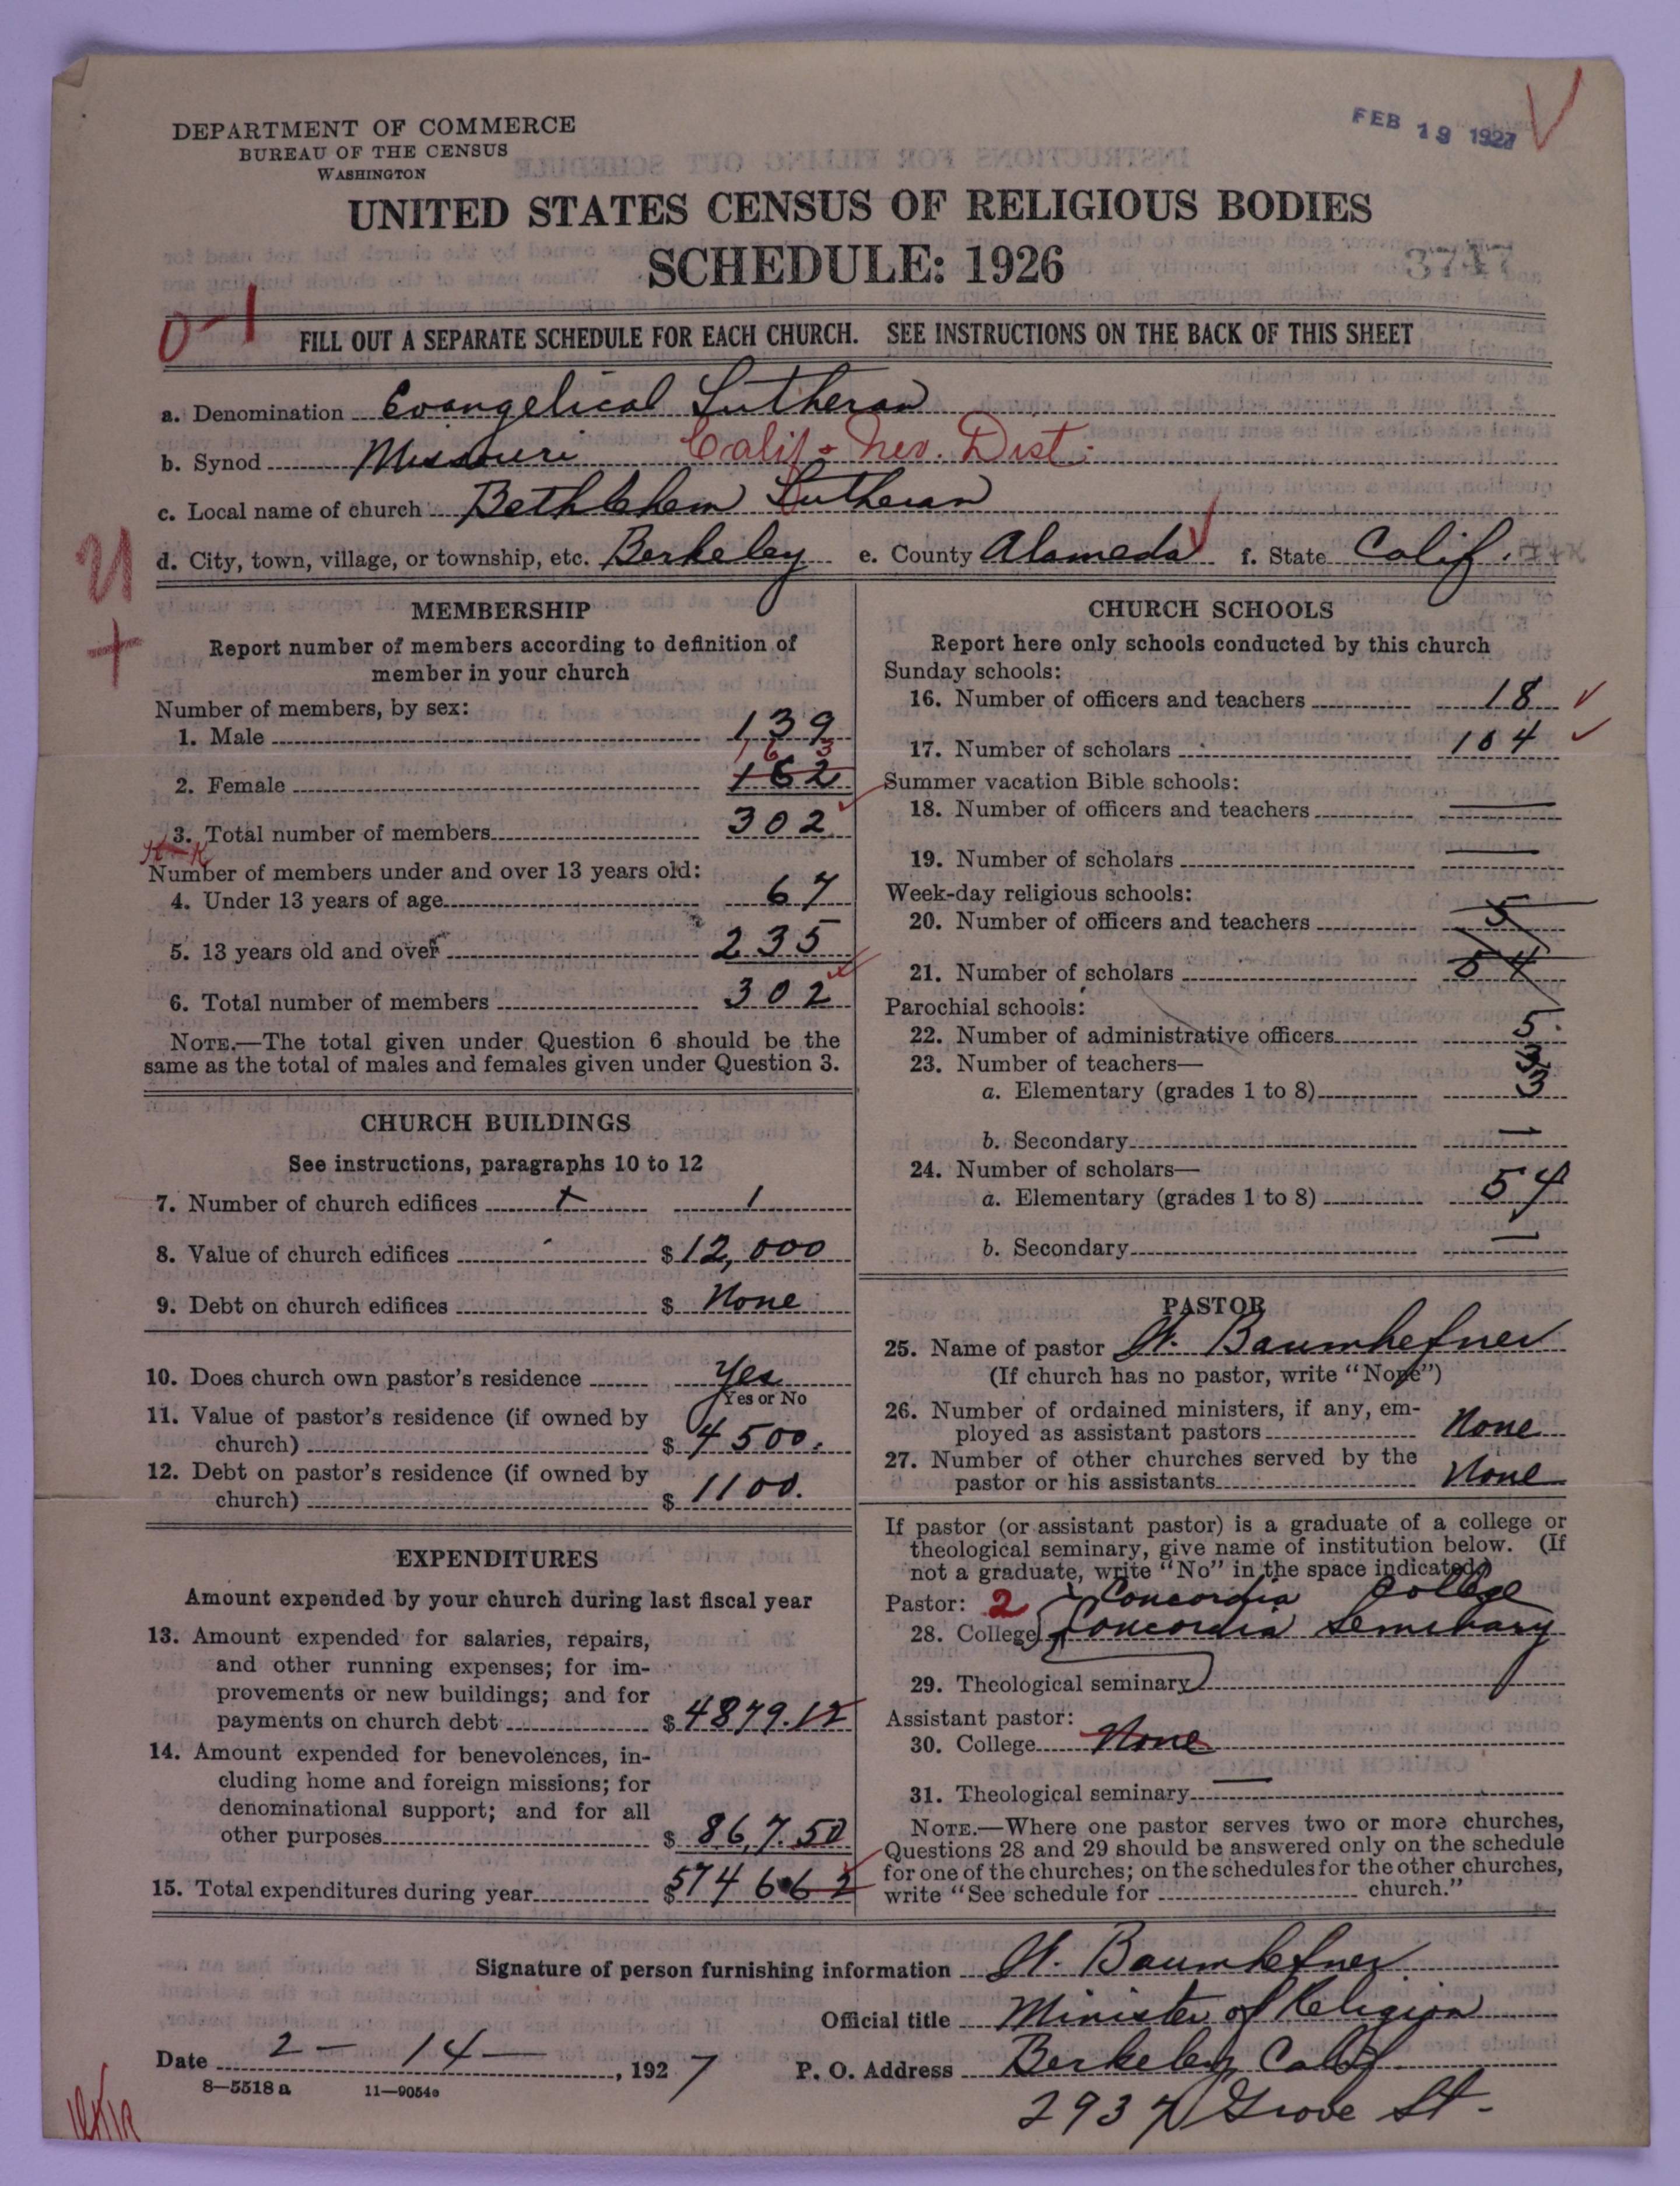 FEB 19 1927
DEPARTMENT OF COMMERCE
BUREAU OF THE CENSUS
WASHINGTON
UNITED STATES CENSUS OF RELIGIOUS BODIES
SCHEDULE: 1926
3747
0-1
FILL OUT A SEPARATE SCHEDULE FOR EACH CHURCH. SEE INSTRUCTIONS ON THE BACK OF THIS SHEET
a. Denomination Evangelical Lutheran
b. Synod Missouri Calif & Nev. Dist.
c. Local name of church Bethlehem Lutheran
d. City, town, village, or township, etc. Berkeley e. County Alameda f. State Calif.
MEMBERSHIP
Report number of members according to definition of
member in your church
Number of members, by sex:
1. Male 139
1 6 3
2. Female 162
3. Total number of members 302
Number of members under and over 13 years old:
4. Under 13 years of age 67
5. 13 years old and over 235
6. Total number of members 302
NOTE.—The total given under Question 6 should be the
same as the total of males and females given under Question 3.
CHURCH BUILDINGS
See instructions, paragraphs 10 to 12
7. Number of church edifices 1
8. Value of church edifices $ 12,000
9. Debt on church edifices $ None
10. Does church own pastor's residence Yes
Yes or No
11. Value of pastor's residence (if owned by
church) $ 4500.
12. Debt on pastor's residence (if owned by
church) $ 1100.
EXPENDITURES
Amount expended by your church during last fiscal year
13. Amount expended for salaries, repairs,
and other running expenses; for im-
provements or new buildings; and for
payments on church debt $ 4879.12
14. Amount expended for benevolences, in-
cluding home and foreign missions; for
denominational support; and for all
other purposes $ 867.50
15. Total expenditures during year $ 5746.62
CHURCH SCHOOLS
Report here only schools conducted by this church
Sunday schools:
16. Number of officers and teachers 18
17. Number of scholars 164
Summer vacation Bible schools:
18. Number of officers and teachers —
19. Number of scholars —
Week-day religious schools:
20. Number of officers and teachers 5
21. Number of scholars 54
Parochial schools:
22. Number of administrative officers 5.
23. Number of teachers— 3
a. Elementary (grades 1 to 8) 3
b. Secondary —
24. Number of scholars—
a. Elementary (grades 1 to 8) 54
b. Secondary —
PASTOR
25. Name of pastor W. Baumhefner
(If church has no pastor, write "None")
26. Number of ordained ministers, if any, em-
ployed as assistant pastors None
27. Number of other churches served by the
pastor or his assistants None
If pastor (or assistant pastor) is a graduate of a college or
theological seminary, give name of institution below. (If
not a graduate, write "No" in the space indicated.)
Pastor: 2 Concordia College
28. College Concordia Seminary
29. Theological seminary
Assistant pastor:
30. College None
31. Theological seminary —
NOTE.—Where one pastor serves two or more churches,
Questions 28 and 29 should be answered only on the schedule
for one of the churches; on the schedules for the other churches,
write "See schedule for church."
Signature of person furnishing information W. Baumhefner
Official title Minister of Religion
Date 2 - 14 - , 1927 P. O. Address Berkeley, Calif
8-5518 a 11-9054a
2937 Grove St.